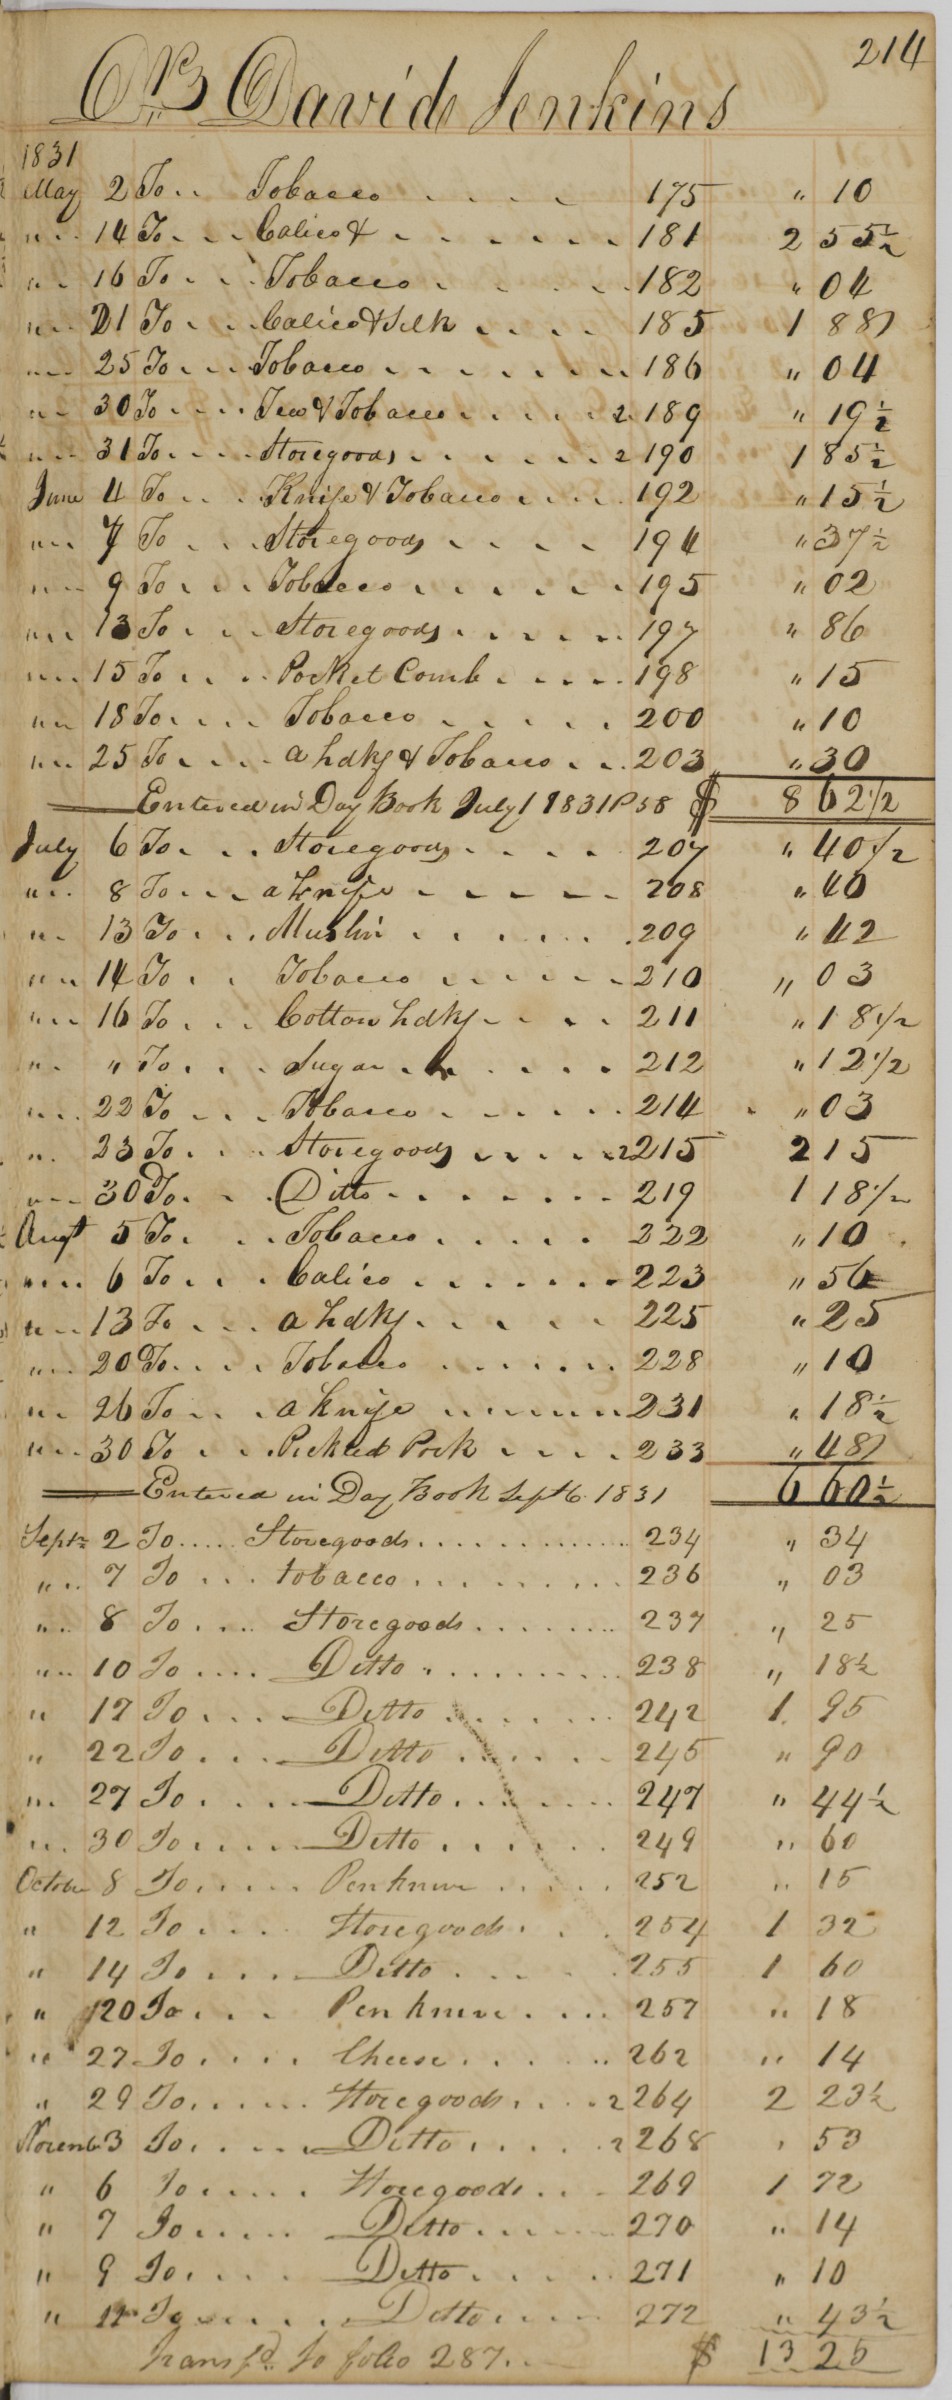 214
Dr David Jenkins
1831
May 2 To .. Tobacco .... 175 " 10
" " 14 To ... Calico & ...... 181 2 55½
" " 16 To ... Tobacco ..... 182 " 04
" " 21 To ... Calico & Silk .... 185 1 88
" " 25 To ... Tobacco ....... 186 " 04
" " 30 To .... Tea & Tobacco ..... 2 189 " 19½
" " 31 To .... Storegoods ...... 2 190 1 85½
June 4 To ... Knife & Tobacco .... 192 " 15½
" " 7 To ... Storegoods .... 194 " 37½
" " 9 To ... Tobacco ...... 195 " 02
" " 13 To ... Storegoods ..... 197 " 86
" " 15 To .... Pocket Comb .... 198 " 15
" " 18 To .... Tobacco ..... 200 " 10
" " 25 To .... a hdkf & Tobacco ... 203 " 30
Entered in Day Book July 1 1831 P 58 $ 8 62 1/2
July 6 To ... Storegoods .... 207 " 40 1/2
" " 8 To ... a knife ..... 208 " 40
" " 13 To ... Muslin ...... 209 " 42
" " 14 To .. Tobacco ...... 210 " 03
" " 16 To ... Cotton hdkf .... 211 " 18 1/2
" " " To ... Sugar ..... 212 " 12 1/2
" " 22 To ... Tobacco ...... 214 " 03
" " 23 To ... Storegoods .... 2 215 2 15
" " 30 To .. Ditto ....... 219 1 18 1/2
Augt 5 To ... Tobacco ..... 222 " 10
" " 6 To ... Calico ...... 223 " 56
" " 13 To ... a hdkf ..... 225 " 25
" " 20 To .... Tobacco ...... 228 " 10
" " 26 To ... a knife ...... 231 " 18½
" " 30 To ... Pickled Pork .... 233 " 48
Entered in Day Book Sept 6 1831 6 60½
Septr 2 To ..... Storegoods ............ 234 " 34
" " 7 To ... tobacco ......... 236 " 03
" " 8 To .... Storegoods ........ 237 " 25
" " 10 To .... Ditto .......... 238 " 18½
" 17 To .... Ditto ....... 242 1 95
" 22 To .... Ditto ...... 245 " 90
" " 27 To .... Ditto ....... 247 " 44½
" " 30 To ..... Ditto ...... 249 " 60
October 8 To ..... Penknive ..... 252 " 15
" 12 To .... Storegoods ... 254 1 32
" 14 To .... Ditto .... 255 1 60
" 20 To ... Penknive .... 257 " 18
" 27 To .... Cheese ...... 262 " 14
" 29 To ...... Storegoods .... 2 264 2 23½
Novemb 3 To ..... Ditto .... 2 268 " 53
" 6 To ..... Storegoods ... 269 1 72
" 7 To ..... Ditto ..... 270 " 14
" 9 To .... Ditto ..... 271 " 10
" To ..... Ditto .... 272 " 43½
Transfd To folio 287 .. $ 13 25